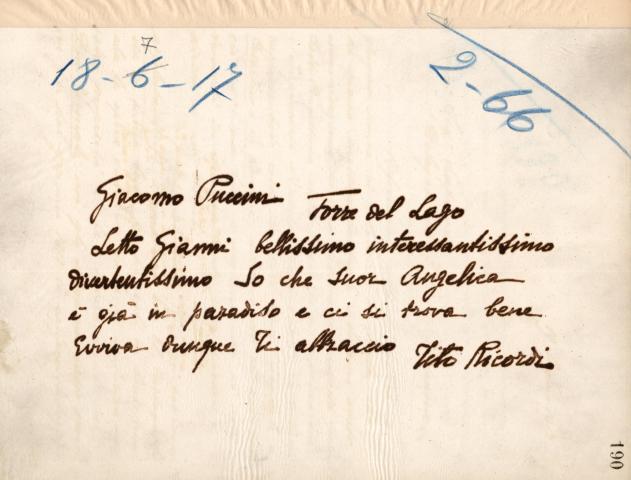 7
18-6-17
2-66
Giacomo Puccini Torre del Lago
Letto Gianni bellissimo interessantissimo
divertentissimo So che suor Angelica
è già in paradiso e ci si trova bene
Evviva dunque Ti abbraccio Tito Ricordi
190